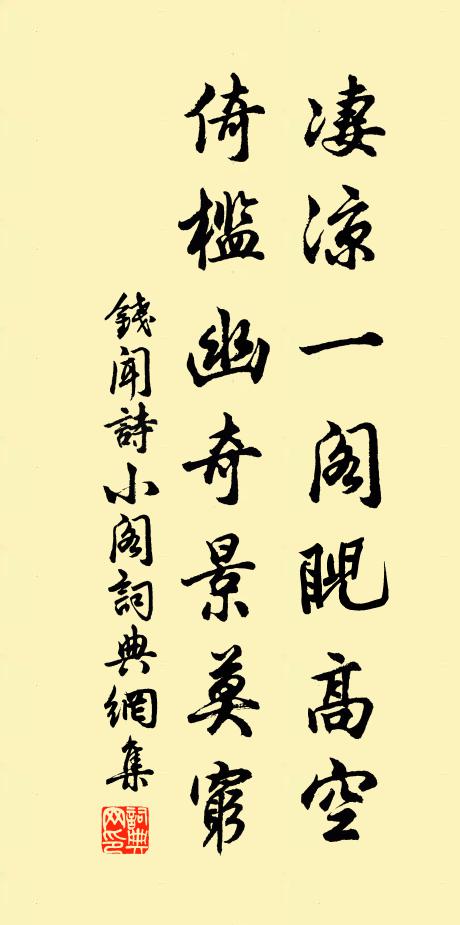 凄涼一閣睨高空
倚檻幽奇景莫窮
錢聞詩小閣詞典網集
詞典网印